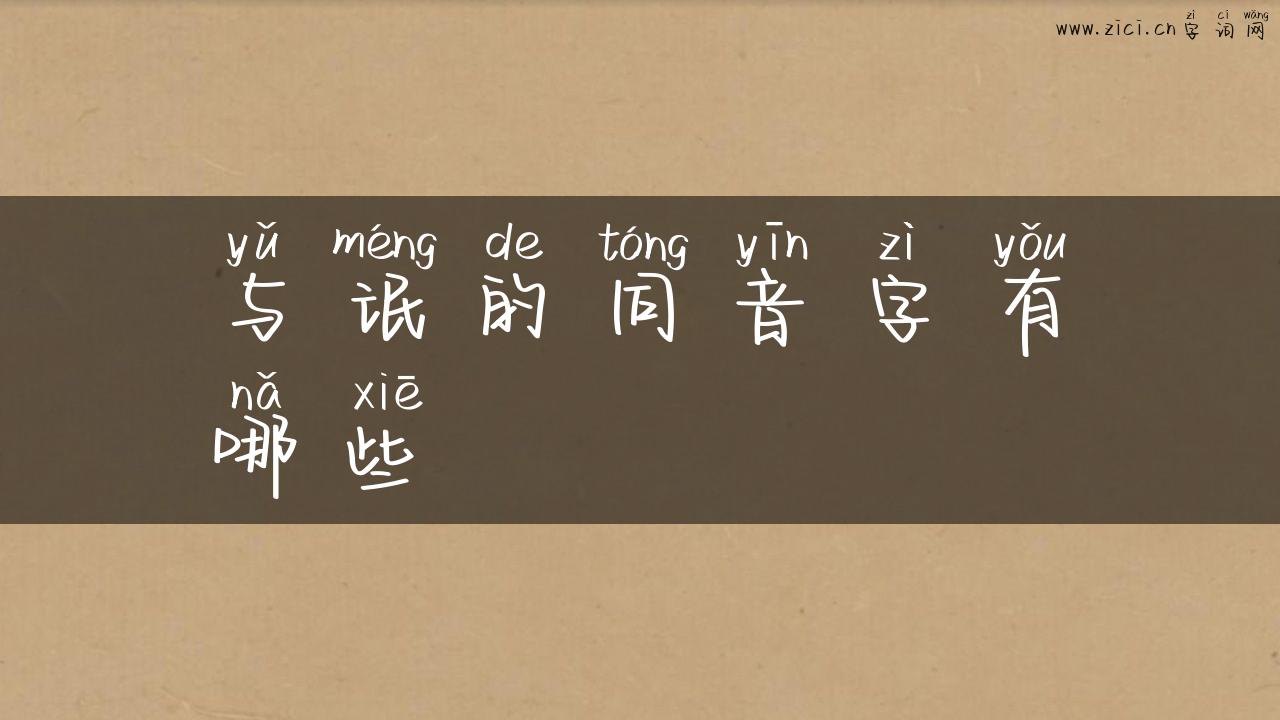 zì cí wǎng
www.zici.cn 字词网
yǔ méng de tóng yīn zì yǒu
与氓的同音字有
nǎ xiē
哪些